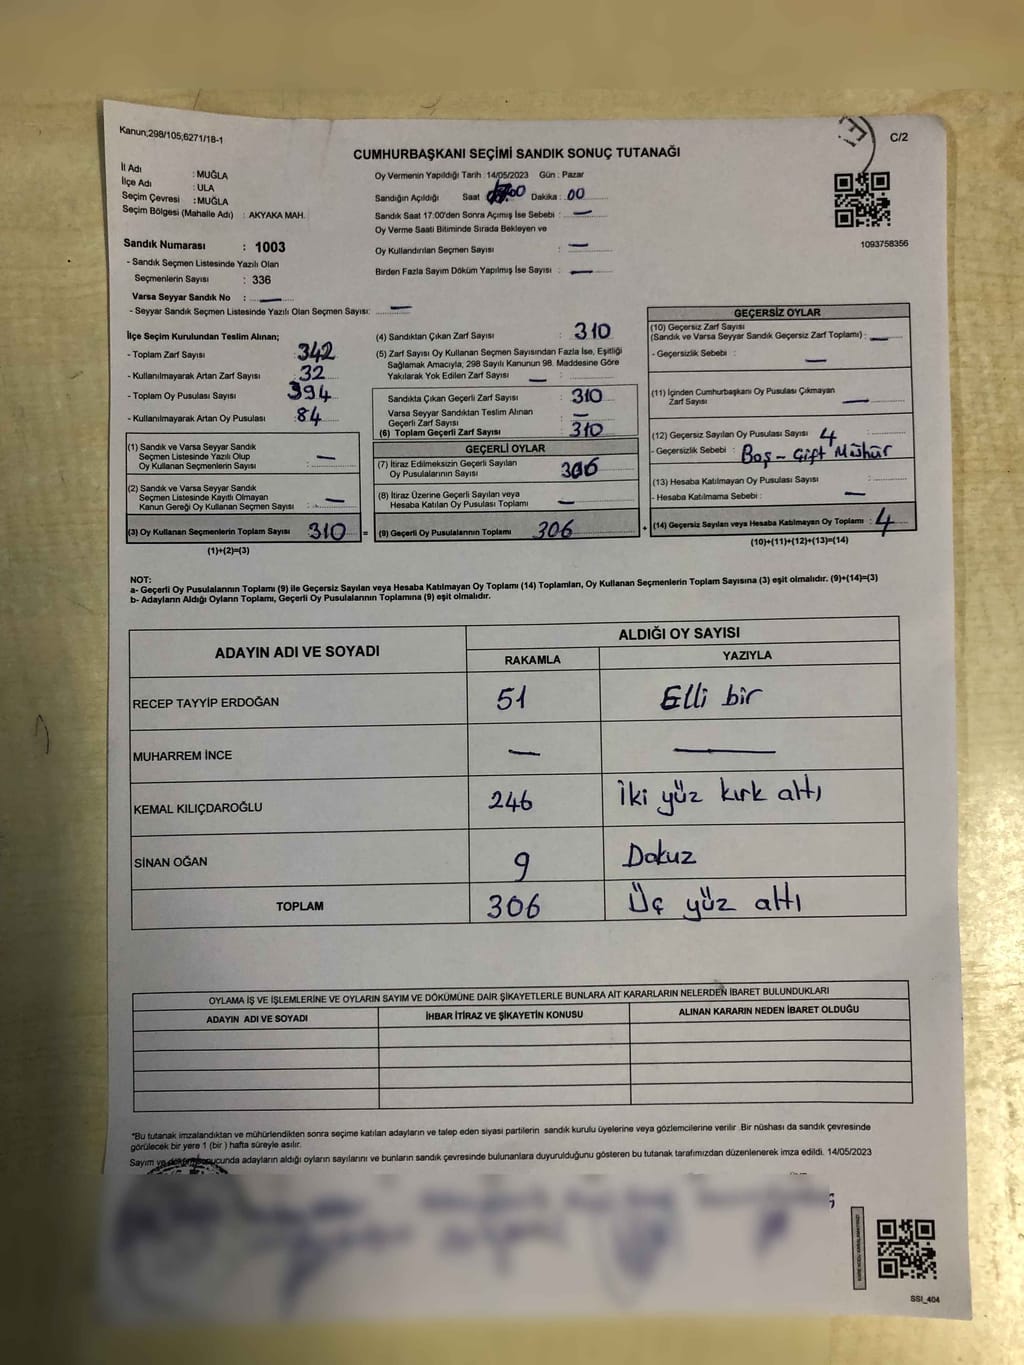 Kanun;298/105,6271/18-1
C/2
CUMHURBAŞKANI SEÇİMİ SANDIK SONUÇ TUTANAĞI
İl Adı : MUĞLA
İlçe Adı : ULA
Seçim Çevresi : MUĞLA
Seçim Bölgesi (Mahalle Adı) : AKYAKA MAH.
Sandık Numarası : 1003
- Sandık Seçmen Listesinde Yazılı Olan
Seçmenlerin Sayısı : 336
Varsa Seyyar Sandık No : —
- Seyyar Sandık Seçmen Listesinde Yazılı Olan Seçmen Sayısı: —
Oy Vermenin Yapıldığı Tarih : 14/05/2023 Gün : Pazar
Sandığın Açıldığı Saat :00 Dakika : 00
Sandık Saat 17:00'den Sonra Açımış İse Sebebi : —
Oy Verme Saati Bitiminde Sırada Bekleyen ve
Oy Kullandırılan Seçmen Sayısı : —
Birden Fazla Sayım Döküm Yapılmış İse Sayısı : —
1093758356
İlçe Seçim Kurulundan Teslim Alınan;
- Toplam Zarf Sayısı : 342
- Kullanılmayarak Artan Zarf Sayısı : 32
- Toplam Oy Pusulası Sayısı : 394
- Kullanılmayarak Artan Oy Pusulası : 84
(1) Sandık ve Varsa Seyyar Sandık
Seçmen Listesinde Yazılı Olup
Oy Kullanan Seçmenlerin Sayısı : —
(2) Sandık ve Varsa Seyyar Sandık
Seçmen Listesinde Kayıtlı Olmayan
Kanun Gereği Oy Kullanan Seçmen Sayısı : —
(3) Oy Kullanan Seçmenlerin Toplam Sayısı : 310 =
(1)+(2)=(3)
(4) Sandıktan Çıkan Zarf Sayısı : 310
(5) Zarf Sayısı Oy Kullanan Seçmen Sayısından Fazla İse, Eşitliği
Sağlamak Amacıyla, 298 Sayılı Kanunun 98. Maddesine Göre
Yakılarak Yok Edilen Zarf Sayısı : —
Sandıkta Çıkan Geçerli Zarf Sayısı : 310
Varsa Seyyar Sandıktan Teslim Alınan
Geçerli Zarf Sayısı : —
(6) Toplam Geçerli Zarf Sayısı : 310
GEÇERLİ OYLAR
(7) İtiraz Edilmeksizin Geçerli Sayılan
Oy Pusulalarının Sayısı : 306
(8) İtiraz Üzerine Geçerli Sayılan veya
Hesaba Katılan Oy Pusulası Toplamı : —
(9) Geçerli Oy Pusulalarının Toplamı : 306 +
GEÇERSİZ OYLAR
(10) Geçersiz Zarf Sayısı
(Sandık ve Varsa Seyyar Sandık Geçersiz Zarf Toplamı) : —
- Geçersizlik Sebebi : —
(11) İçinden Cumhurbaşkanı Oy Pusulası Çıkmayan
Zarf Sayısı : —
(12) Geçersiz Sayılan Oy Pusulası Sayısı : 4
- Geçersizlik Sebebi : Boş - Çift Mühür
(13) Hesaba Katılmayan Oy Pusulası Sayısı :
- Hesaba Katılmama Sebebi : —
(14) Geçersiz Sayılan veya Hesaba Katılmayan Oy Toplamı : 4
(10)+(11)+(12)+(13)=(14)
NOT:
a- Geçerli Oy Pusulalarının Toplamı (9) ile Geçersiz Sayılan veya Hesaba Katılmayan Oy Toplamı (14) Toplamları, Oy Kullanan Seçmenlerin Toplam Sayısına (3) eşit olmalıdır. (9)+(14)=(3)
b- Adayların Aldığı Oyların Toplamı, Geçerli Oy Pusulalarının Toplamına (9) eşit olmalıdır.
ADAYIN ADI VE SOYADI ALDIĞI OY SAYISI
RAKAMLA YAZIYLA
RECEP TAYYİP ERDOĞAN 51 Elli bir
MUHARREM İNCE — —
KEMAL KILIÇDAROĞLU 246 İki yüz kırk altı
SİNAN OĞAN 9 Dokuz
TOPLAM 306 Üç yüz altı
OYLAMA İŞ VE İŞLEMLERİNE VE OYLARIN SAYIM VE DÖKÜMÜNE DAİR ŞİKAYETLERLE BUNLARA AİT KARARLARIN NELERDEN İBARET BULUNDUKLARI
ADAYIN ADI VE SOYADI İHBAR İTİRAZ VE ŞİKAYETİN KONUSU ALINAN KARARIN NEDEN İBARET OLDUĞU
*Bu tutanak imzalandıktan ve mühürlendikten sonra seçime katılan adayların ve talep eden siyasi partilerin sandık kurulu üyelerine veya gözlemcilerine verilir .Bir nüshası da sandık çevresinde
görülecek bir yere 1 (bir ) hafta süreyle asılır.
Sayım ve adayların aldığı oyların sayılarını ve bunların sandık çevresinde bulunanlara duyurulduğunu gösteren bu tutanak tarafımızdan düzenlenerek imza edildi. 14/05/2023
SSI_404